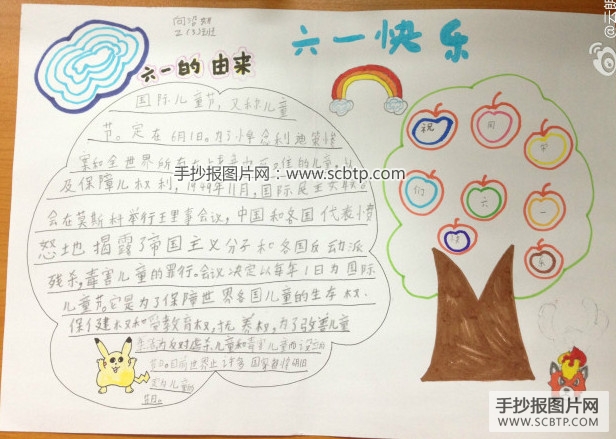 六一快乐
六一的由来
国际儿童节，又称儿童
节。定在6月1日。为了悼念利地策惨
案和全世界所有在战争中死
及保障儿权利，1949年11月，国际民主妇联
会在莫斯科举行王里事会议，中国和各国代表愤
怒地揭露了帝国主义分子和各国反动派
残杀，毒害儿童的罪行。会议决定以每年1日为国际
儿童节。它是为了保障世界各国儿童的生存权．
保健权和受教育权，抚养权，为了改善儿童
生活，为反对虐杀儿童和毒害儿童而设立的
节日。目前世界上许多国家都将
定为儿童的
节日。
祝
同
学
们
六
一
快
乐
手抄报图片网：www.scbtp.com
手抄报图片网
WWW.SCBTP.COM